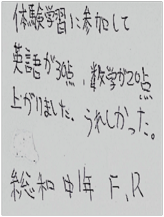 体験学習に参加して
英語が30点、数学が20点
上がりました。うれしかった。
総和中1年 F、R